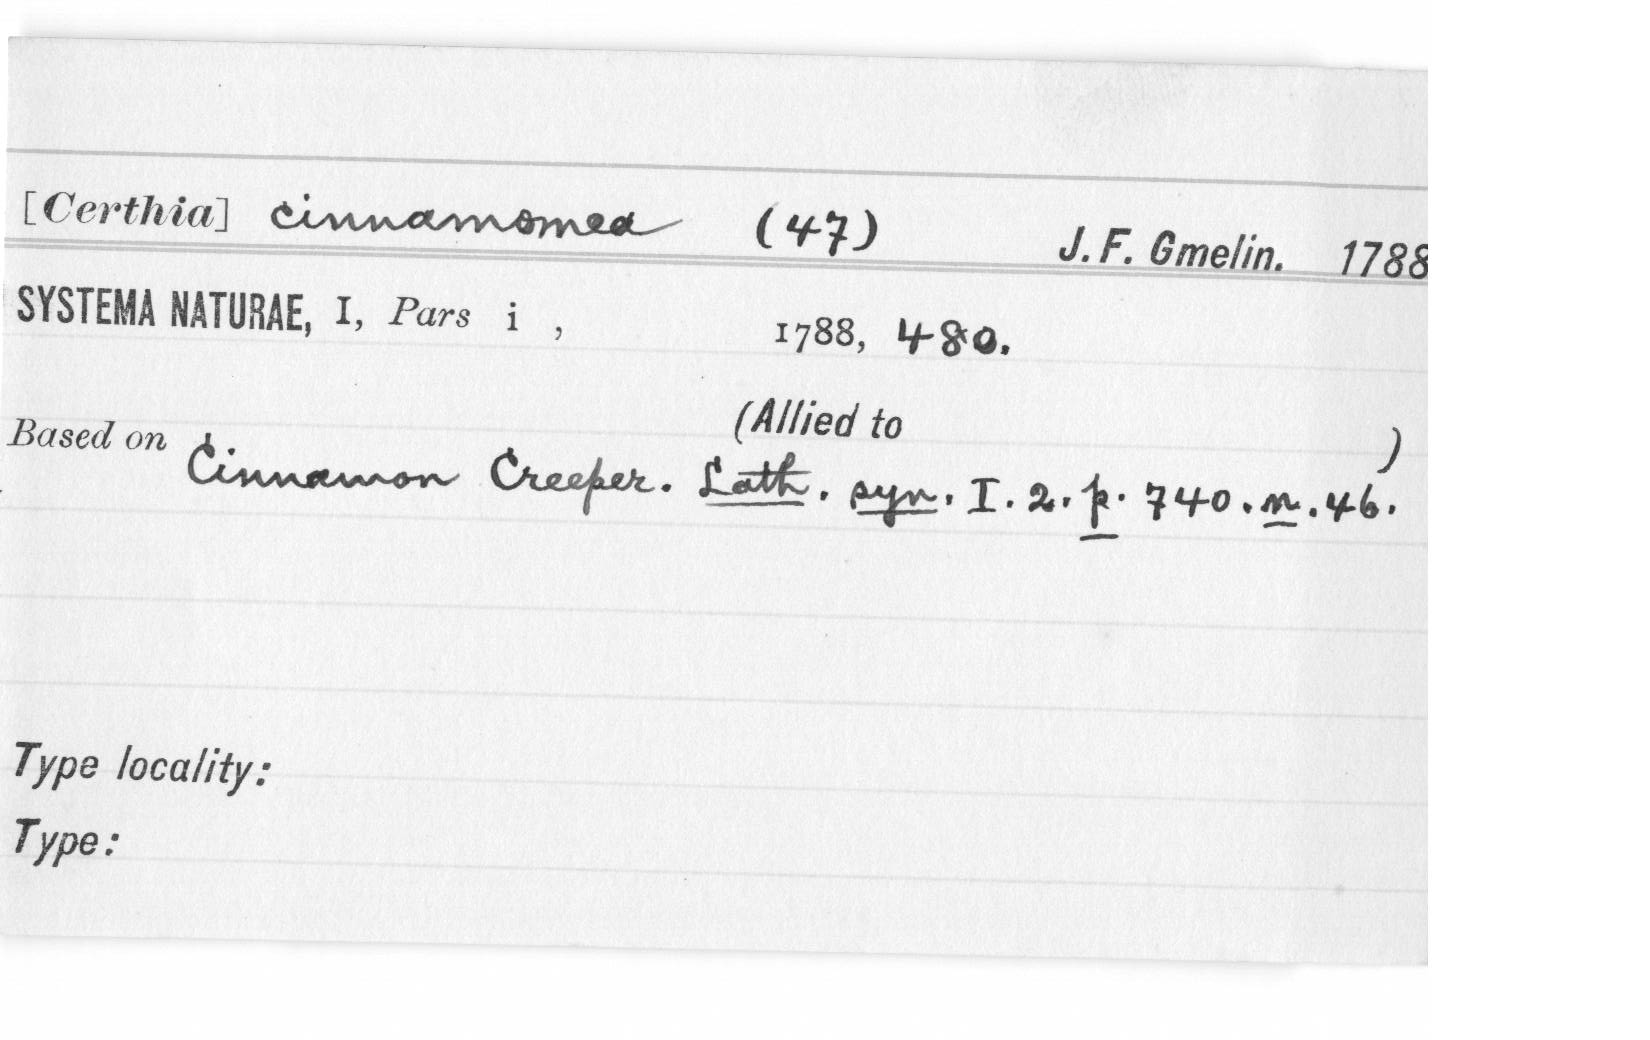 [Certhia] cinnamomea (47) J. F. Gmelin. 1788
SYSTEMA NATURAE, I, Pars i , 1788, 480.
(Allied to )
Based on Cinnamon Creeper. Lath. syn. I. 2. p. 740. n. 46.
Type locality:
Type: